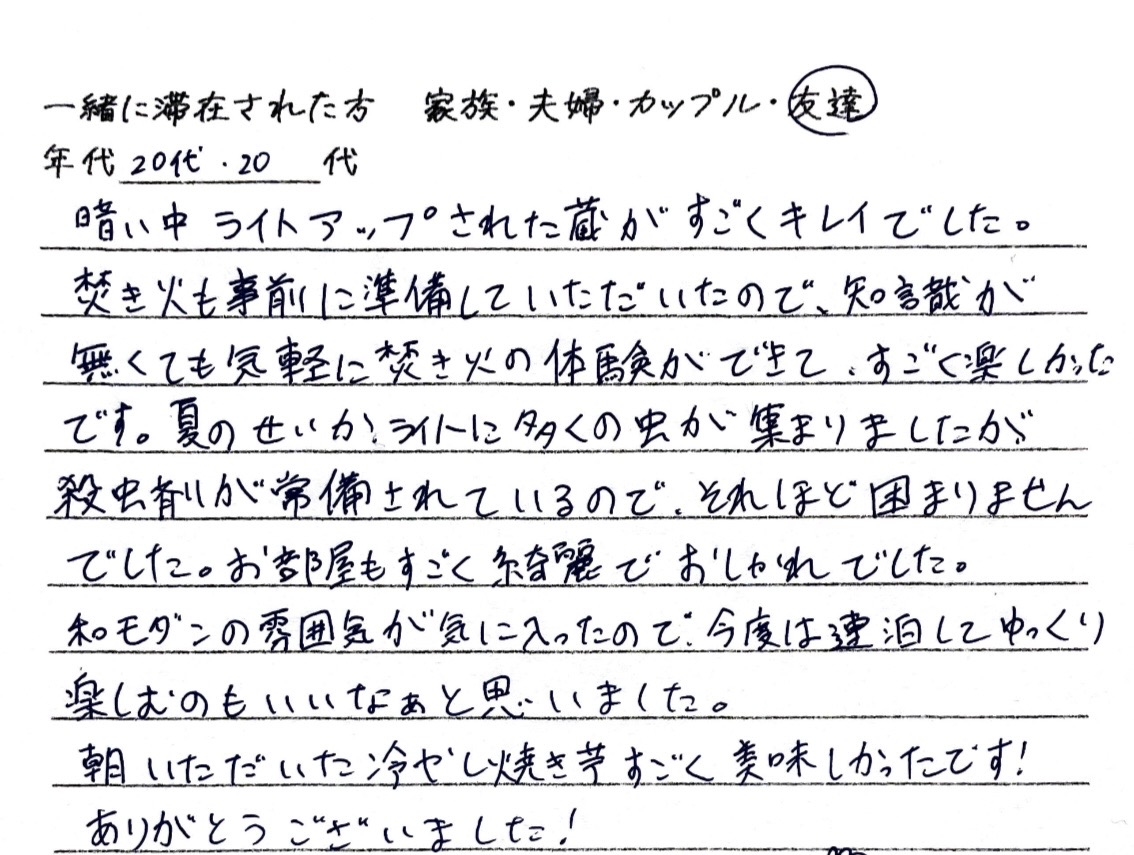 一緒に滞在された方 家族・夫婦・カップル・友達
年代 20代・20 代
暗い中 ライトアップされた蔵が すごくキレイでした。
焚き火も事前に準備していただいたので、知識が
無くても気軽に焚き火の体験ができて、すごく楽しかった
です。夏のせいか、ライトに多くの虫が集まりましたが、
殺虫剤が常備されているので、それほど困まりません
でした。お部屋もすごく綺麗でおしゃれでした。
和モダンの雰囲気が気に入ったので、今度は連泊してゆっくり
楽しむのもいいなぁと思いました。
朝いただいた冷やし焼き芋すごく美味しかったです!
ありがとうございました!